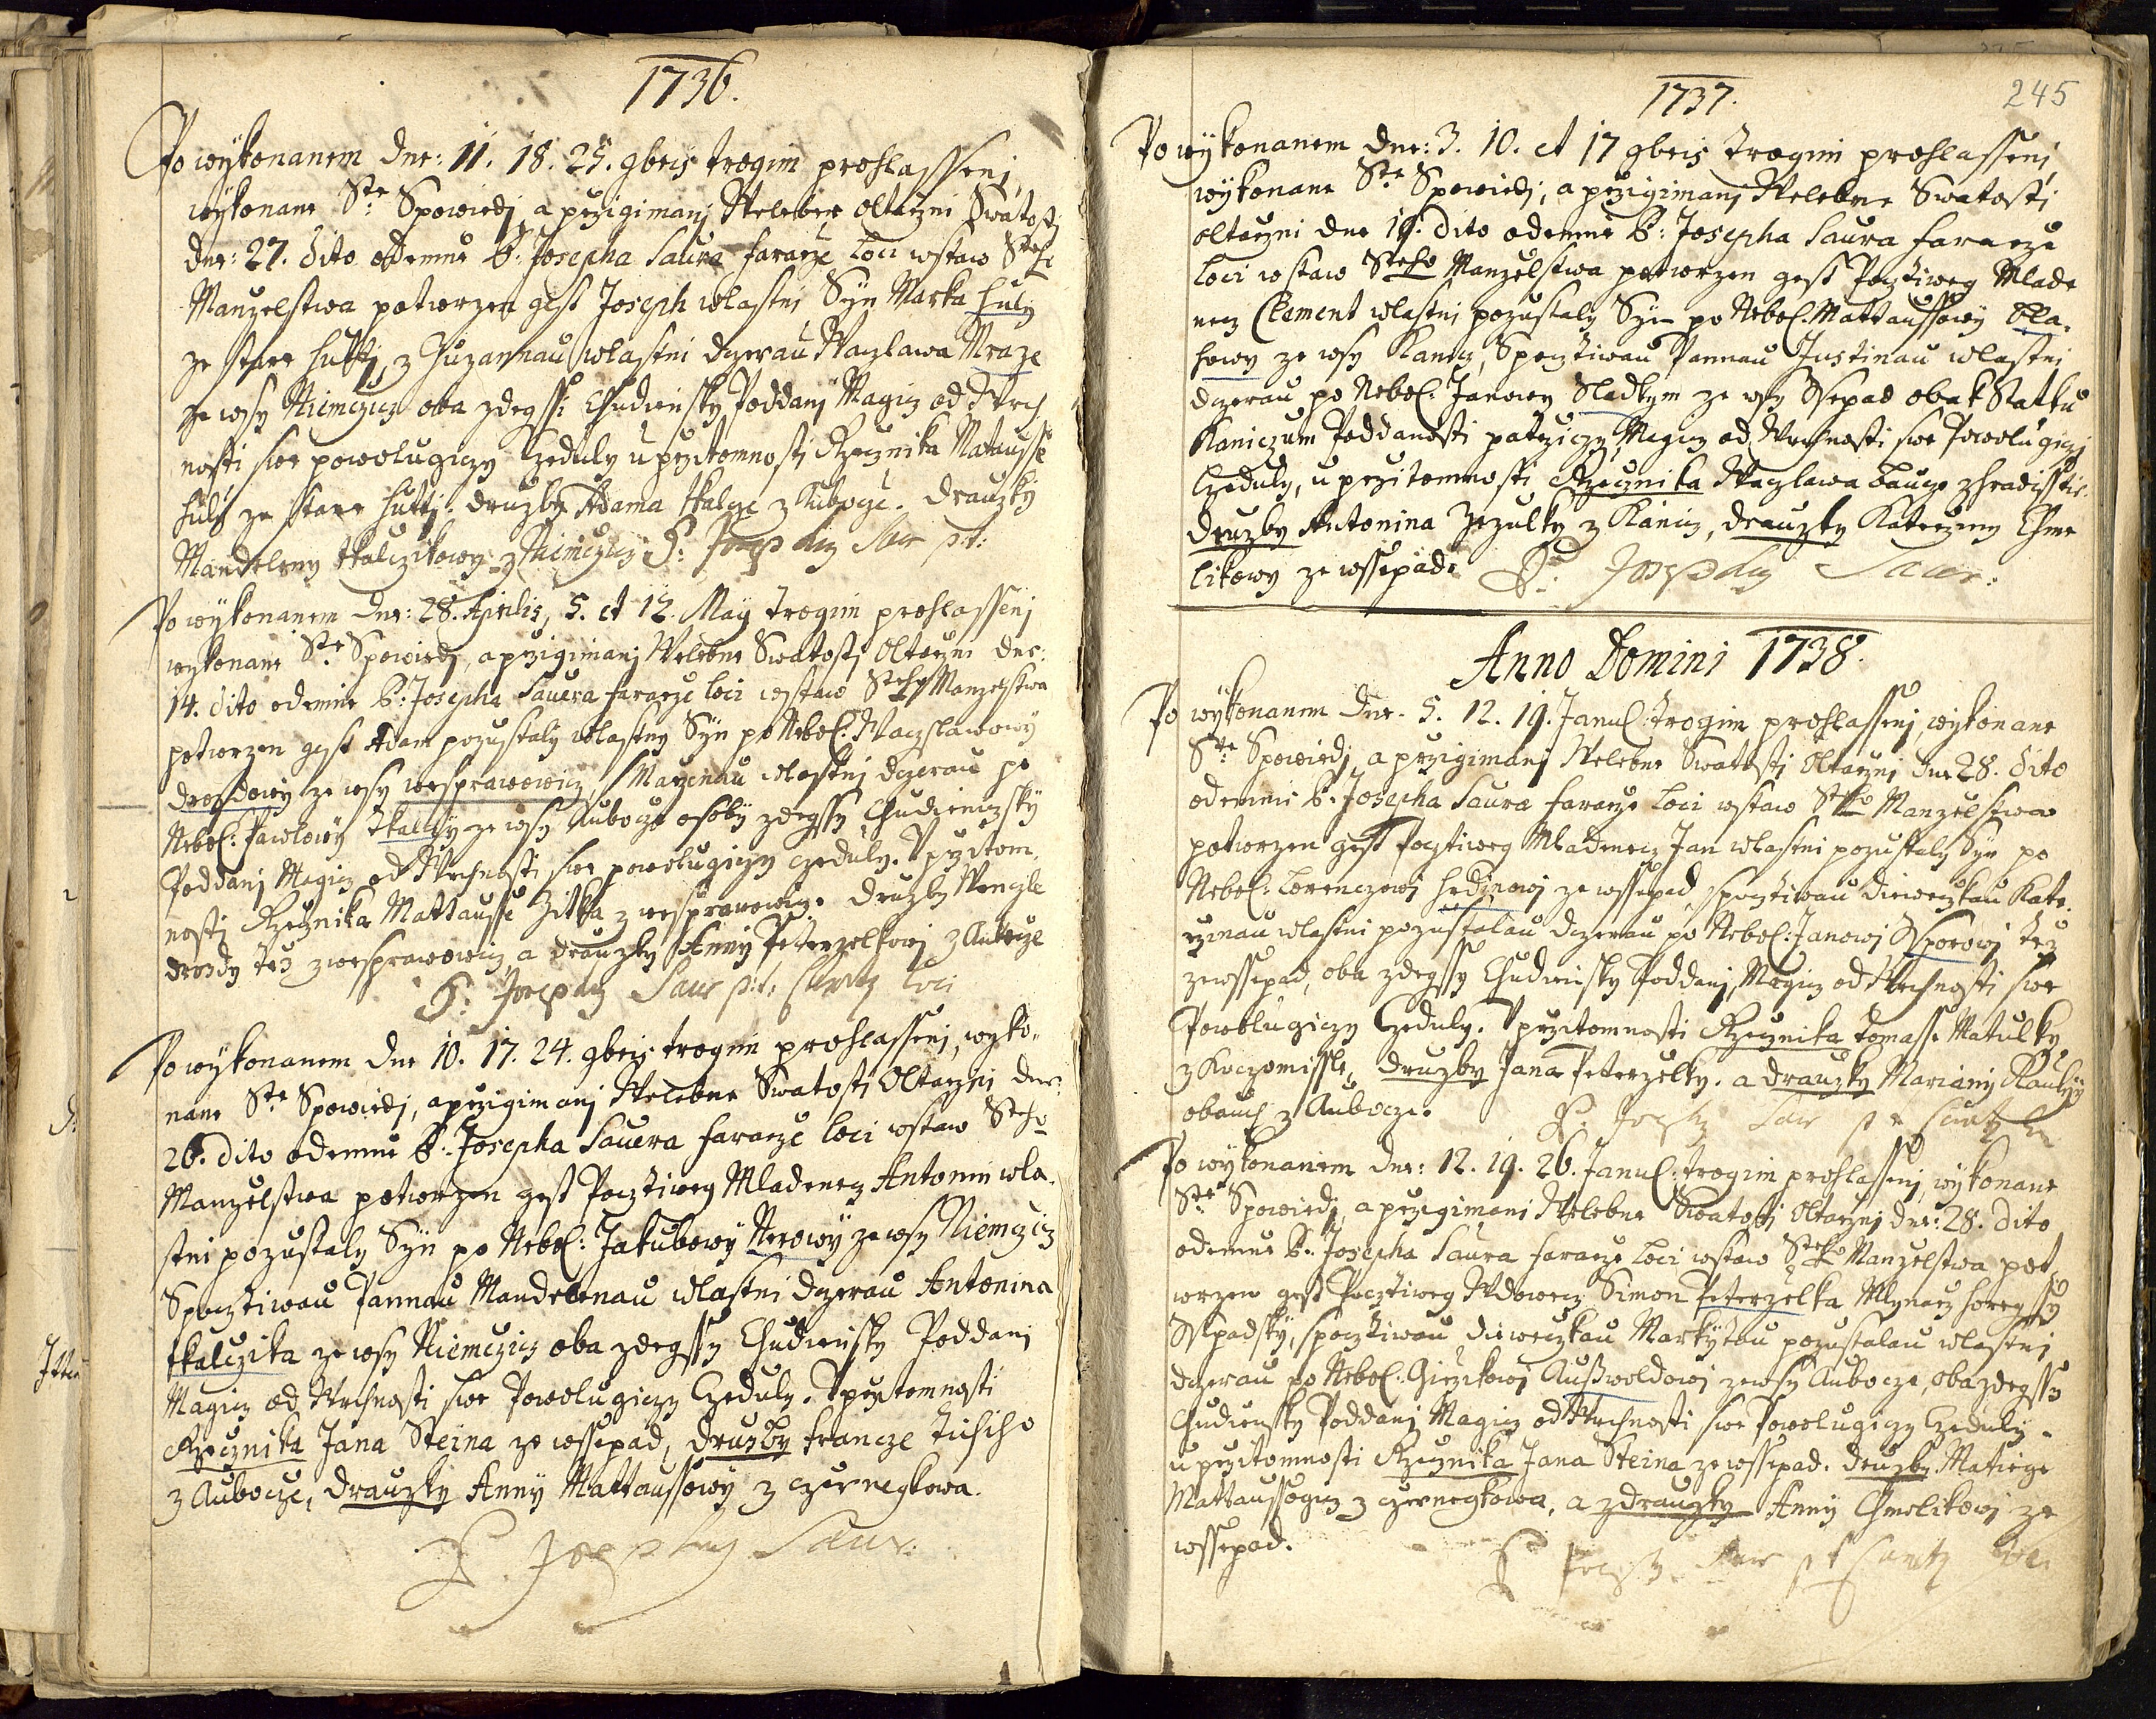 1736.
Po wykonanem dne: 11. 18. 25. 9bris trogim prohlassenj,
wykonane Ste Spowiedj, a przigimanj Welebne oltarzni Swatosti
dne: 27. dito odemne P: Josepha Saura fararze loci wstaw Steho
Manzelstwa potwrzen gest Joseph wlastni Syn Marka Huly
ze stare Hutti, z Zuzannau wlastni dczerau Waczlawa Mraze
ze wsy Niemczicz oba zdegssi Chudienssky Poddani Magicz od Wrch
nosti swe powolugiczy Czeduly u przitomnosti Rzecznika Matausse
Huly ze stare Hutti. druzby Adama tkalcze z Auborze. drauzky
Mandeleny tkalczikowy z Niemczicz P: Josephus Saur p.t:
Po wykonanem dne: 28. Aprilis, 5. et 12. May trogim prohlassenj
wykonane Ste Spowiedj, a przigimanj Welebne Swatosti Oltarzni dne:
14. dito odemne P: Josepha Sauera fararze loci wstaw Steho Manzelstwa
potwrzen gest Adam pozustaly wlastny Syn po Nebol: Waczslawowy
drosdowy ze wsy wesprawowicz, s Marzenau wlastni dczerau po
Nebol: Pawlowy tkalczy ze wsy Auborze osoby zdegssy Chudieniczsky
Poddani Magicz od Wrchnosti swe powolugiczy czeduly. Vprzitom,
nosti Rzecznika Mattausse Zitka z wesprawowicz. druzby Wenczle
drosdy tez z wesprawowicz a drauzky Anny Peterzelkowj z Auborze
P: Josephus Saur p:t: Curatus loci
Po wykonanem dne 10. 17. 24. 9bris trogim prohlassenj, wyko„
nane Ste Spowiedj, a przigimanj Welebne Swatosti Oltarzni dne:
26. dito odemne P: Josepha Sauera fararze loci wstaw Steho
Manzelstwa potwrzen gest Pocztiweg Mladenecz Antonin wla„
stni pozustaly Syn po Nebol: Jakubowy Nerowy ze wsy Niemczicz
Spocztiwau Pannau Mandelenau wlastni dczerau Antonina
tkalczika ze wsy Niemczicz oba zdegssy Chudiensky Poddani
Magicz od Wrchnosti swe Powolugiczy Czeduly. Vprzitomnosti
Rzecznika Jana Steina ze wssepad, drusby francze Tichiho
z Auborze, drauzky Anny Mattaussowy z czernegkowa.
P. Josephus Saur.
1737.
245
Po wykonanem dne: 3. 10. et 17 9bris trogim prohlassenj,
wykonane Ste Spowiedj, a przigimanj Welebne Swatosti
oltarzni dne 19. dito odemne P: Josepha Saura fararze
loci wstaw Steho Manzelstwa potwrzen gest Pocztiweg Mlade
necz Clement wlastni pozustaly Syn po Nebol. Mattaussowy Bla„
howy ze wsy Kanicz, Spocztiwau Pannau Justinau wlastni
dczerau po Nebol: Janowy Sladkym ze wsy Wssepad oba k Statku
Kaniczum Poddanosti patrziczy, Magicz od Wrchnosti swe Powolugiczi
Czeduly, u przitomnosti Rzecznika Waczlawa Baucze z hradisstie
druzby Antonina Zezulky z Kanicz, drauzky Katerzeny Chme
likowy ze wssepad. P: Josephus Saur:
Anno Domini 1738.
Po wykonanem dne. 5. 12. 19. Janu[l]: trogim prohlassenj, wykonane
Ste Spowiedj a przigimanj Welebne Swatosti Oltarznj dne 28. dito
odemne P. Josepha Saura fararze loci wstaw Steho Manzelstwa
potwrzen gest Pocztiweg Mladenecz Jan wlastni pozustaly Syn po
Nebol: Lorenczowi Hrdinowi ze wssepad, spocztiwau diweczkau Kate„
rzinau wlastni pozustalau dczerau po Nebol: Janowj Sporowj tez
ze wssepad, oba zdegssy Chudiensky Poddanj, Magicz od Wrchnosti swe
Powolugiczy Czeduly. Vprzitomnosti Rzecznika Tomasse Matulky
z Koczomissle, druzby Jana Peterzelky. a drauzky Mariany Raulky
obauch z Auborze.
Po wykonanem dne: 12. 19. 26. Janu[l]: trogim prohlassenj, wykonane
Ste Spowiedj, a przigimani Welebne Swatosti Oltarznj dne: 28. dito
odemne P: Josepha Saura fararze loci wstaw Steho Manzelstwa pot„
wrzen gest Pocztiweg Wdowecz Simon Peterzelka Mlynarz horegssy
Wssepadsky, spocztiwau diweczkau Markytau pozustalau wlastni
dczerau po Nebol: Girzikowj Außwoldowj ze wsy Auborze, oba zdegssy
Chudiensky Poddanj Magicz od Wrchnosti swe Powolugiczy Czeduly.
u przitomnosti Rzecznika Jana Steina ze wssepad. druzby Matiege
Mattaussogicz z czernegkowa, a zdrauzky Anny Chmelikowj ze
wssepad.